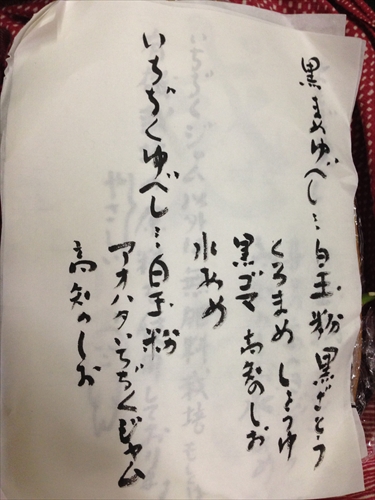 黒まめゆべし…白玉粉 黒ざとう
くろまめ しょうゆ
黒ゴマ 高知のしお
水あめ
いちぢくゆべし…白玉粉
アオハタいちぢくジャム
高知のしお